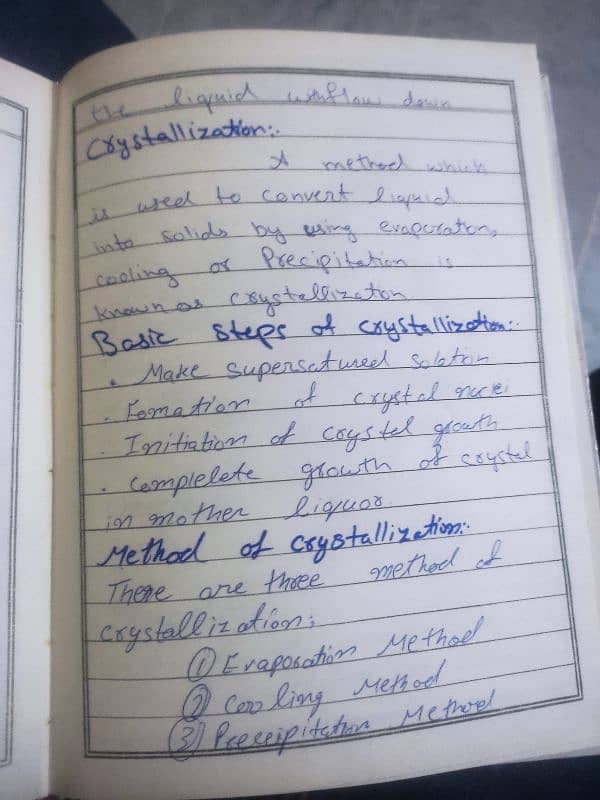 the liquid withflow down
Crystallization:.
A method which
is used to convert liquid
into solids by using evaporation,
cooling or Precipitation is
known as crystallization
Basic steps of crystallization:.
. Make supersatured solution
. Fomation of crystal nuclei
. Initiation of crystal growth
. Complelete growth of crystal
in mother liquor.
Method of crystallization:.
There are three method of
crystallization:
① Evaporation Method
② Cooling Method
③ Precipitation Method